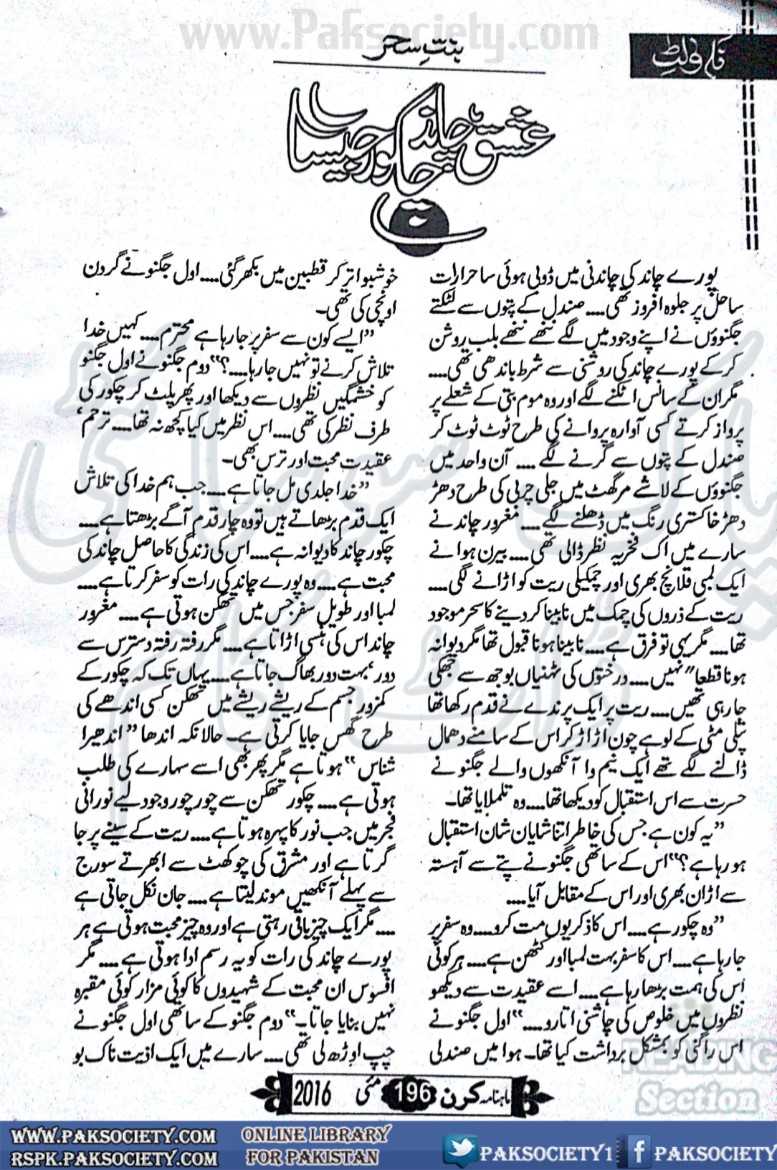 www.Paksociety.com
بنتِ سحر
عشق چاند چکور جیسا
پورے چاند کی چاندنی میں ڈوبی ہوئی ساحرارات
ساحل پر جلوہ افروز تھی۔۔۔ صندل کے پتوں سے لٹکتے
جگنوؤں نے اپنے وجود میں لگے ننھے ننھے بلب روشن
کرکے پورے چاند کی روشنی سے شرط باندھی تھی۔۔۔
مگر ان کے سانس اٹکنے لگے اور وہ موم بتی کے شعلے پر
پرواز کرتے کسی آوارہ پروانے کی طرح ٹوٹ ٹوٹ کر
صندل کے پتوں سے گرنے لگے۔۔۔ آن واحد میں
جگنوؤں کے لاشے مرگھٹ میں جلی چربی کی طرح دھڑ
دھڑ خاکستری رنگ میں ڈھلنے لگے۔۔۔ مغرور چاند نے
سارے میں اک فخریہ نظر ڈالی تھی۔۔۔ بیرن ہوا نے
ایک لمبی قلانچ بھری اور چمکیلی ریت کو اڑانے لگی۔۔۔
ریت کے ذروں کی چمک میں نابینا کر دینے کا سحر موجود
تھا۔۔۔ مگر یہی تو فرق ہے۔۔۔ نابینا ہونا قبول تھا مگر دیوانہ
ہونا قطعاً نہیں۔۔۔ درختوں کی ٹہنیاں بوجھ سے جھکی
جا رہی تھیں۔۔۔ ریت پر ایک پرندے نے قدم رکھا تھا
پیلی مٹی کے لوبے چون اڑ اڑ کر اس کے سامنے دھمال
ڈالنے لگے تھے ایک نیم وا آنکھوں والے جگنو نے
حسرت سے اس استقبال کو دیکھا تھا۔۔۔ وہ تلملایا تھا۔
”یہ کون ہے جس کی خاطر اتنا شایان شان استقبال
ہو رہا ہے؟“ اس کے ساتھی جگنو نے پتے سے آہستہ
سے اڑان بھری اور اس کے مقابل آیا۔۔۔
”وہ چکور ہے۔۔۔ اس کا ذکر یوں مت کرو۔۔۔ وہ سفر پر
جا رہا ہے۔۔۔ اس کا سفر بہت لمبا اور کٹھن ہے۔۔۔ ہر کوئی
اس کی ہمت بڑھا رہا ہے۔۔۔ اسے عقیدت سے دیکھو
نظروں میں خلوص کی چاشنی اتارو۔۔۔“ اول جگنو نے
اس راگنی کو بمشکل برداشت کیا تھا۔ ہوا میں صندلی
خوشبو اتر کر قطبین میں بکھر گئی۔۔۔ اول جگنو نے گردن
اونچی کی تھی۔
”ایسے کون سے سفر پر جا رہا ہے محترم۔۔۔ کہیں خدا
تلاش کرنے تو نہیں جا رہا۔۔۔؟“ دوم جگنو نے اول جگنو
کو خشمگیں نظروں سے دیکھا اور پھر پلٹ کر چکور کی
طرف نظر کی تھی۔۔۔ اس نظر میں کیا کچھ نہ تھا۔۔۔ ترحم،
عقیدت محبت اور ترس بھی۔
”خدا جلدی مل جاتا ہے۔۔۔ جب ہم خدا کی تلاش
ایک قدم بڑھاتے ہیں تو وہ چار قدم آگے بڑھتا ہے۔۔۔
چکور چاند کا دیوانہ ہے۔۔۔ اس کی زندگی کا حاصل چاند کی
محبت ہے۔۔۔ وہ پورے چاند کی رات کو سفر کرتا ہے۔۔۔
لمبا اور طویل سفر جس میں تھکن ہوتی ہے۔۔۔ مغرور
چاند اس کی ہنسی اڑاتا ہے۔۔۔ مگر رفتہ رفتہ دسترس سے
دور، بہت دور بھاگ جاتا ہے۔۔۔ یہاں تک کہ چکور کے
کمزور جسم کے ریشے ریشے میں تھکن کسی اندھے کی
طرح گھس جایا کرتی ہے۔ حالانکہ اندھا ”اندھیرا
شناس“ ہوتا ہے مگر پھر بھی اسے سہارے کی طلب
ہوتی ہے۔۔۔ چکور تھکن سے چور چور وجود لیے نورانی
فجر میں جب نور کا پہرہ ہوتا ہے۔۔۔ ریت کے سینے پر جا
گرتا ہے اور مشرق کی چوکھٹ سے ابھرتے سورج
سے پہلے آنکھیں موند لیتا ہے۔۔۔ جان نکل جاتی ہے
۔۔۔ مگر ایک چیز باقی رہتی ہے اور وہ چیز محبت ہوتی ہے ہر
پورے چاند کی رات کو یہ رسم ادا ہوتی ہے۔۔۔ مگر
افسوس ان محبت کے شہیدوں کا کوئی مزار کوئی مقبرہ
نہیں بنایا جاتا۔“ دوم جگنو کے ساتھی اول جگنو نے
چپ اوڑھ لی تھی۔۔۔ سارے میں ایک اذیت ناک بو
ماہنامہ کرن 196 مئی 2016
READING
Section
WWW.PAKSOCIETY.COM
RSPK.PAKSOCIETY.COM
ONLINE LIBRARY
FOR PAKISTAN
PAKSOCIETY1
PAKSOCIETY